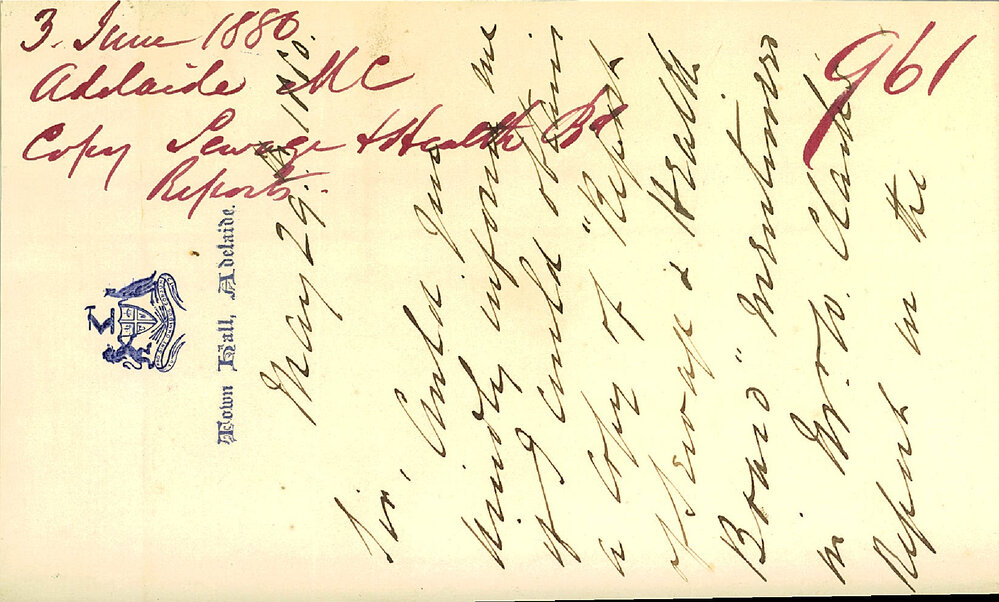 3. June 1880
Adelaide MC
Copy Sewage & Health Bd
Reports.
961
Town Hall, Adelaide.
May 29. 1880.
Sir,
Could you
kindly inform me
if I could obtain
a copy of "Report
of Sewage & Health
Board" mentioned
in Mr. W. Clark's
Report in the